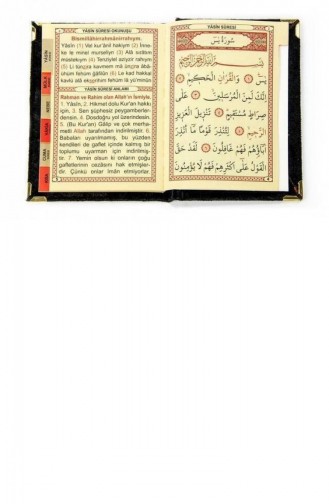 YÂSÎN SÛRESİ-OKUNUŞU
Bismillâhirrahmânirrahıym.
Yâsîn (1) Vel kur'ânil hakıym (2) İnne-
ke le minel murselîyn (3) Alâ sırâtım
mustekıym (4) Tenziylel aziyzir rahıym
(5) Li tunzira kavmem mâ unzira âbâ-
ühüm fehüm ğâfilûn (6) Le kad hakkal
kavlü alâ ekserihim fehüm lâ yü'minûn
YÂSÎN SÛRESİ-ANLAMI
Rahman ve Rahîm olan Allah'ın İsmiyle.
1. Yâsîn. 2. Hikmet dolu Kur'an hakkı
için, 3. Sen şüphesiz peygamberler-
densin. 4. Dosdoğru yol üzerindesin.
5. (Bu Kur'an) Gâlip ve çok merha-
metli Allah tarafından indirilmiştir. 6.
Babaları uyarılmamış, bu yüzden
kendileri de gaflet içinde kalmış bir
toplumu uyarman için indirilmiş-
tir. 7. Yemin olsun ki onların çoğu
gafletlerinin cezasını hak etmişler-
dir. Çünkü onlar îmân etmiyorlar.
YÂSÎN SÛRESİ
سُورَةُ يٰسٓ
بِسْمِ اللّٰهِ الرَّحْمٰنِ الرَّحِيمِ
يٰسٓ ﴿١﴾ وَالْقُرْاٰنِ الْحَكِيمِ ﴿٢﴾
اِنَّكَ لَمِنَ الْمُرْسَلِينَ ﴿٣﴾ عَلٰى
صِرَاطٍ مُسْتَقِيمٍ ﴿٤﴾ تَنْزِيلَ الْعَزِيزِ
الرَّحِيمِ ﴿٥﴾ لِتُنْذِرَ قَوْمًا مَا اُنْذِرَ
اٰبَاؤُهُمْ فَهُمْ غَافِلُونَ ﴿٦﴾ لَقَدْ حَقَّ
الْقَوْلُ عَلٰى اَكْثَرِهِمْ فَهُمْ لَا يُؤْمِنُونَ
YÂSÎN
CUMA